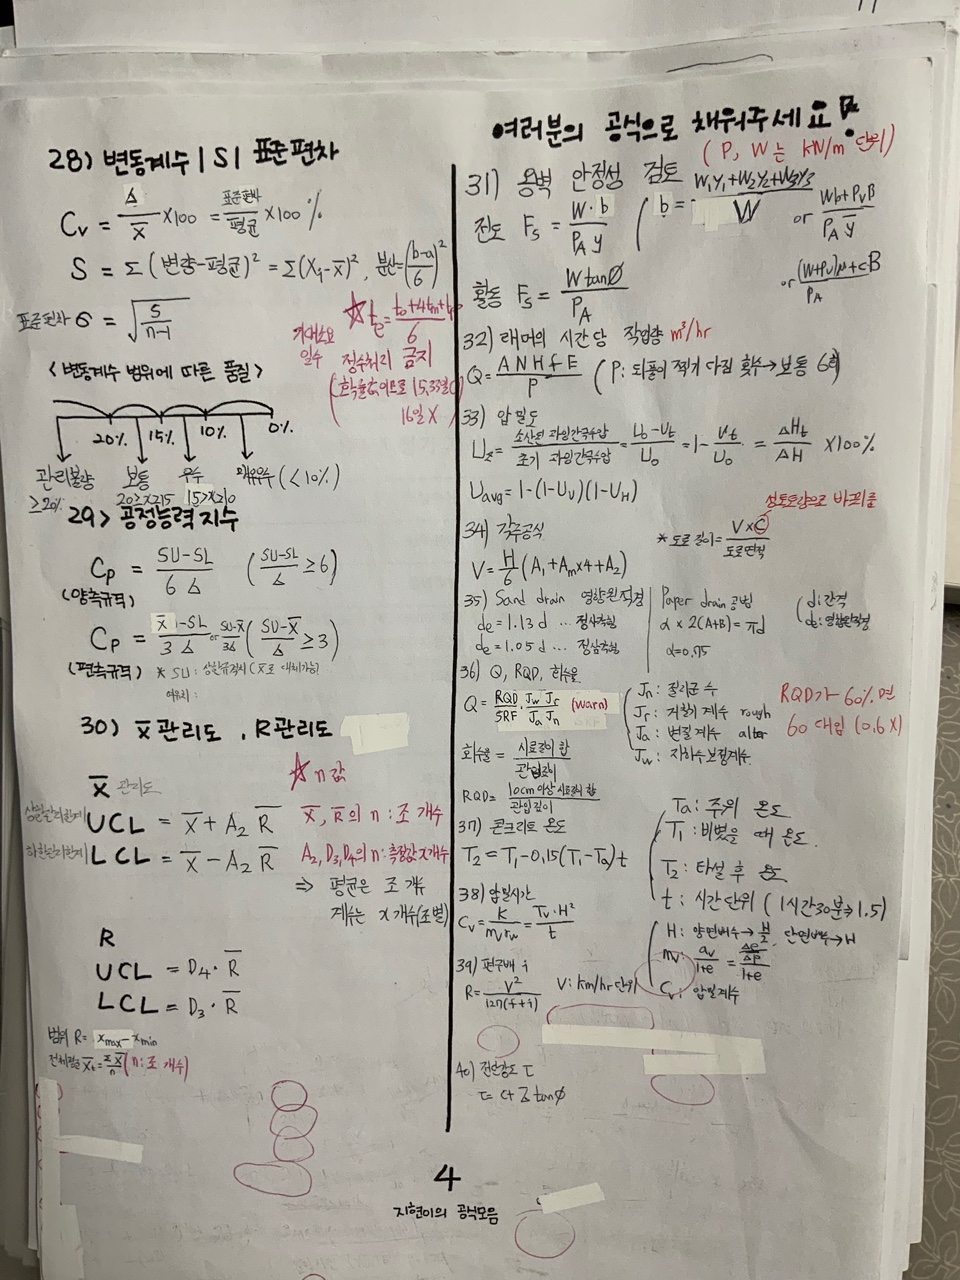 여러분의 공식으로 채워주세요!
28) 변동계수 | S | 표준편차
Cv = б/x̄ ×100 = 표준편차/평균 ×100 %
S = Σ (변량-평균)² = Σ(Xi-x̄)², 분산=((b-a)/6)²
표준편차 б = √(S/(n-1))
☆te = (to+4tm+tp)/6
일수 정수처리 금지
16일 X
<변동계수 범위에 따른 품질>
20% 15% 10% 0%
관리불량 보통 우수 매우우수 (<10%)
≥20% 20≥x≥15 15>x≥10
29> 공정능력 지수
Cp = (SU-SL)/6б ((SU-SL)/б ≥6)
(양측규격)
Cp = (x̄-SL)/3б or (SU-x̄)/3б ((SU-x̄)/б ≥3)
(편측규격) * SU: 상한규격치 (x̄로 대체가능)
여유치 :
30) x̄ 관리도 , R관리도
☆ n값
x̄ 관리도
상한관리한계 UCL = x̄ + A₂ R̄
x̄, R̄의 n : 조 개수
하한관리한계 LCL = x̄ - A₂ R̄
A₂, D₃, D₄의 n : 측정값 x개수
⇒ 평균은 조 개수
계수는 x 개수(조별)
R
UCL = D₄· R̄
LCL = D₃· R̄
범위 R= xmax - xmin
x̄t = Σx̄/n (n: 조 개수)
(P, W는 kN/m 단위)
31) 옹벽 안정성 검토
전도 Fs = W·b/PA y ( b = (W₁y₁+W₂y₂+W₃y₃)/W or (Wb+PvB)/PA ȳ
활동 Fs = Wtanø/PA or ((W+Pv)μ+cB)/PA
32) 래머의 시간당 작업량 m³/hr
Q = ANHfE/P (P: 되풀이 찍기 다짐 횟수→보통 6회)
33) 압밀도
Uz = 소산된 과잉간극수압/초기 과잉간극수압 = (Uo-Ut)/Uo = 1 - Ut/Uo = ΔHt/ΔH ×100%
Uavg = 1-(1-Uv)(1-UH)
성토토량으로 바꿔줌
34) 각주공식
* 도로 길이 = V×C/도로면적
V = H/6 (A₁+Am×4+A₂)
35) Sand drain 영향원직경
de = 1.13d ... 정사각형
de = 1.05d ... 정삼각형
Paper drain 공법
α × 2(A+B) = πd
α=0.75
d: 간격
de: 영향원직경
36) Q, RQD, 회수율
Q = RQD/SRF · Jw Jr/Ja Jn (warn)
Jn: 절리군 수
Jr: 거칠기 계수 rough
Ja: 변질계수 alter
Jw: 지하수보정계수.
RQD가 60%면
60 대입 (0.6 X)
회수율 = 시료길이 합/관입길이
RQD= 10cm 이상 시료길이 합/관입길이
37) 콘크리트 온도
T₂ = T₁-0.15(T₁-Ta)t
Ta: 주위 온도
T₁: 비볐을 때 온도.
T₂: 타설 후 온도
t : 시간단위 (1시간30분⇒1.5)
38) 압밀시간
Cv = K/mv rw = Tv·H²/t
H: 양면배수→H/2, 단면배수→H
mv: av/(1+e) = (Δe/Δp)/(1+e)
Cv: 압밀계수
39) 편구배 i
R = V²/127(f+i) V: km/hr 단위
40) 전단강도 τ
τ= c+ σ tanø
4
지현이의 공식모음